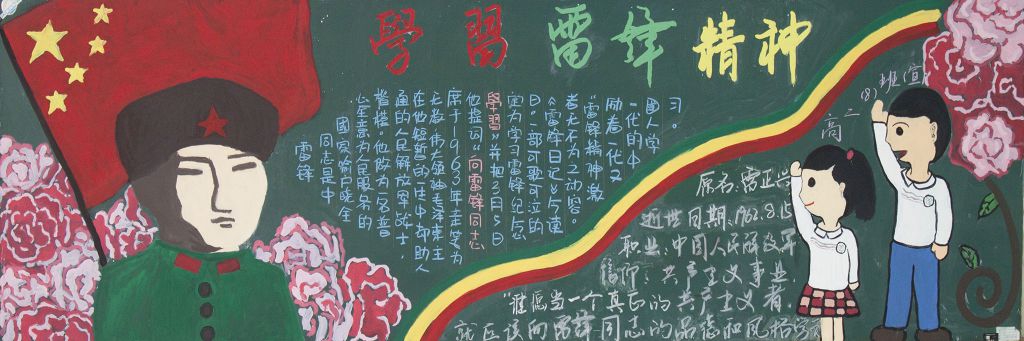 學習雷锋精神
雷锋
同志是中
國家喻戶曉全
心全意为人民服务的
楷模。他作为一名普
通的人民解放军战士,
在他短暂的生中却助人
无数,伟大领袖毛泽东主
席于一1963年走笔为
他提词“向雷锋同志
學習”并把3月5日
定为学习雷锋纪念
日。一部可歌可泣的
《雷锋日记》令读
者无不为之动容。
“雷锋精神激
励着一代又
一代的中
國人学
习。
高二(8)班宣
原名:雷正兴
逝世日期:1962.8.15
职业:中国人民解放军
信仰:共产主义事业.
“谁愿当一个真正的共产主义者,
就应该向雷锋同志的品德和风格学